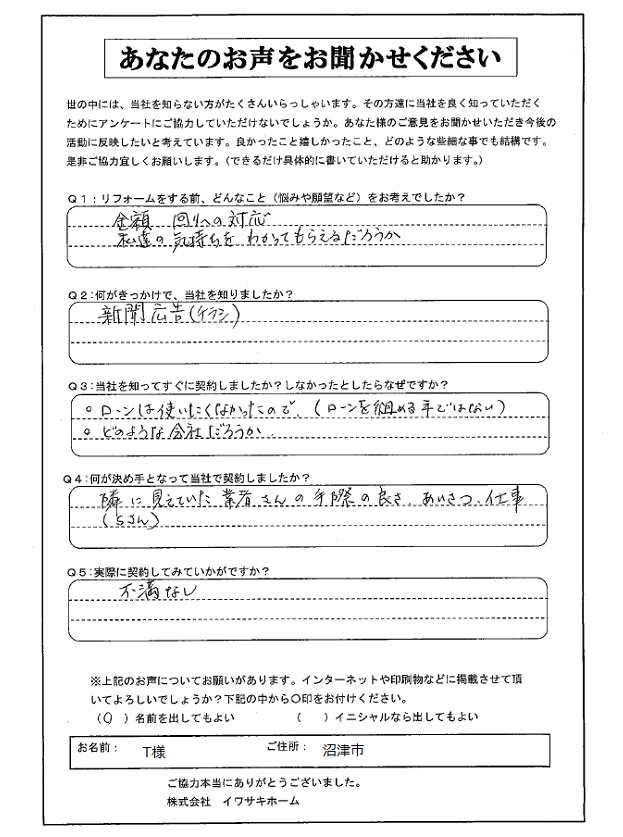 あなたのお声をお聞かせください
世の中には、当社を知らない方がたくさんいらっしゃいます。その方達に当社を良く知っていただく
ためにアンケートにご協力していただけないでしょうか。あなた様のご意見をお聞かせいただき今後の
活動に反映したいと考えています。良かったこと嬉しかったこと、どのような些細な事でも結構です。
是非ご協力宜しくお願いします。(できるだけ具体的に書いていただけると助かります。)
Q1：リフォームをする前、どんなこと（悩みや願望など）をお考えでしたか？
金額　回りへの対応
私達の気持ちをわかってもらえるだろうか
Q2：何がきっかけで、当社を知りましたか？
新聞広告(チラシ)
Q3：当社を知ってすぐに契約しましたか？しなかったとしたらなぜですか？
○ ローンは使いたくなかったので、(ローンを組める手ではない)
○ どのような会社だろうか.
Q4：何が決め手となって当社で契約しましたか？
隣に見えていた業者さんの手際の良さ、あいさつ、仕事
(Sさん)
Q5：実際に契約してみていかがですか？
不満なし
※上記のお声についてお願いがあります。インターネットや印刷物などに掲載させて頂
いてよろしいでしょうか？下記の中から○印をお付けください。
（○）名前を出してもよい　（　）イニシャルなら出してもよい
お名前：　T様　ご住所：　沼津市
ご協力本当にありがとうございました。
株式会社　イワサキホーム